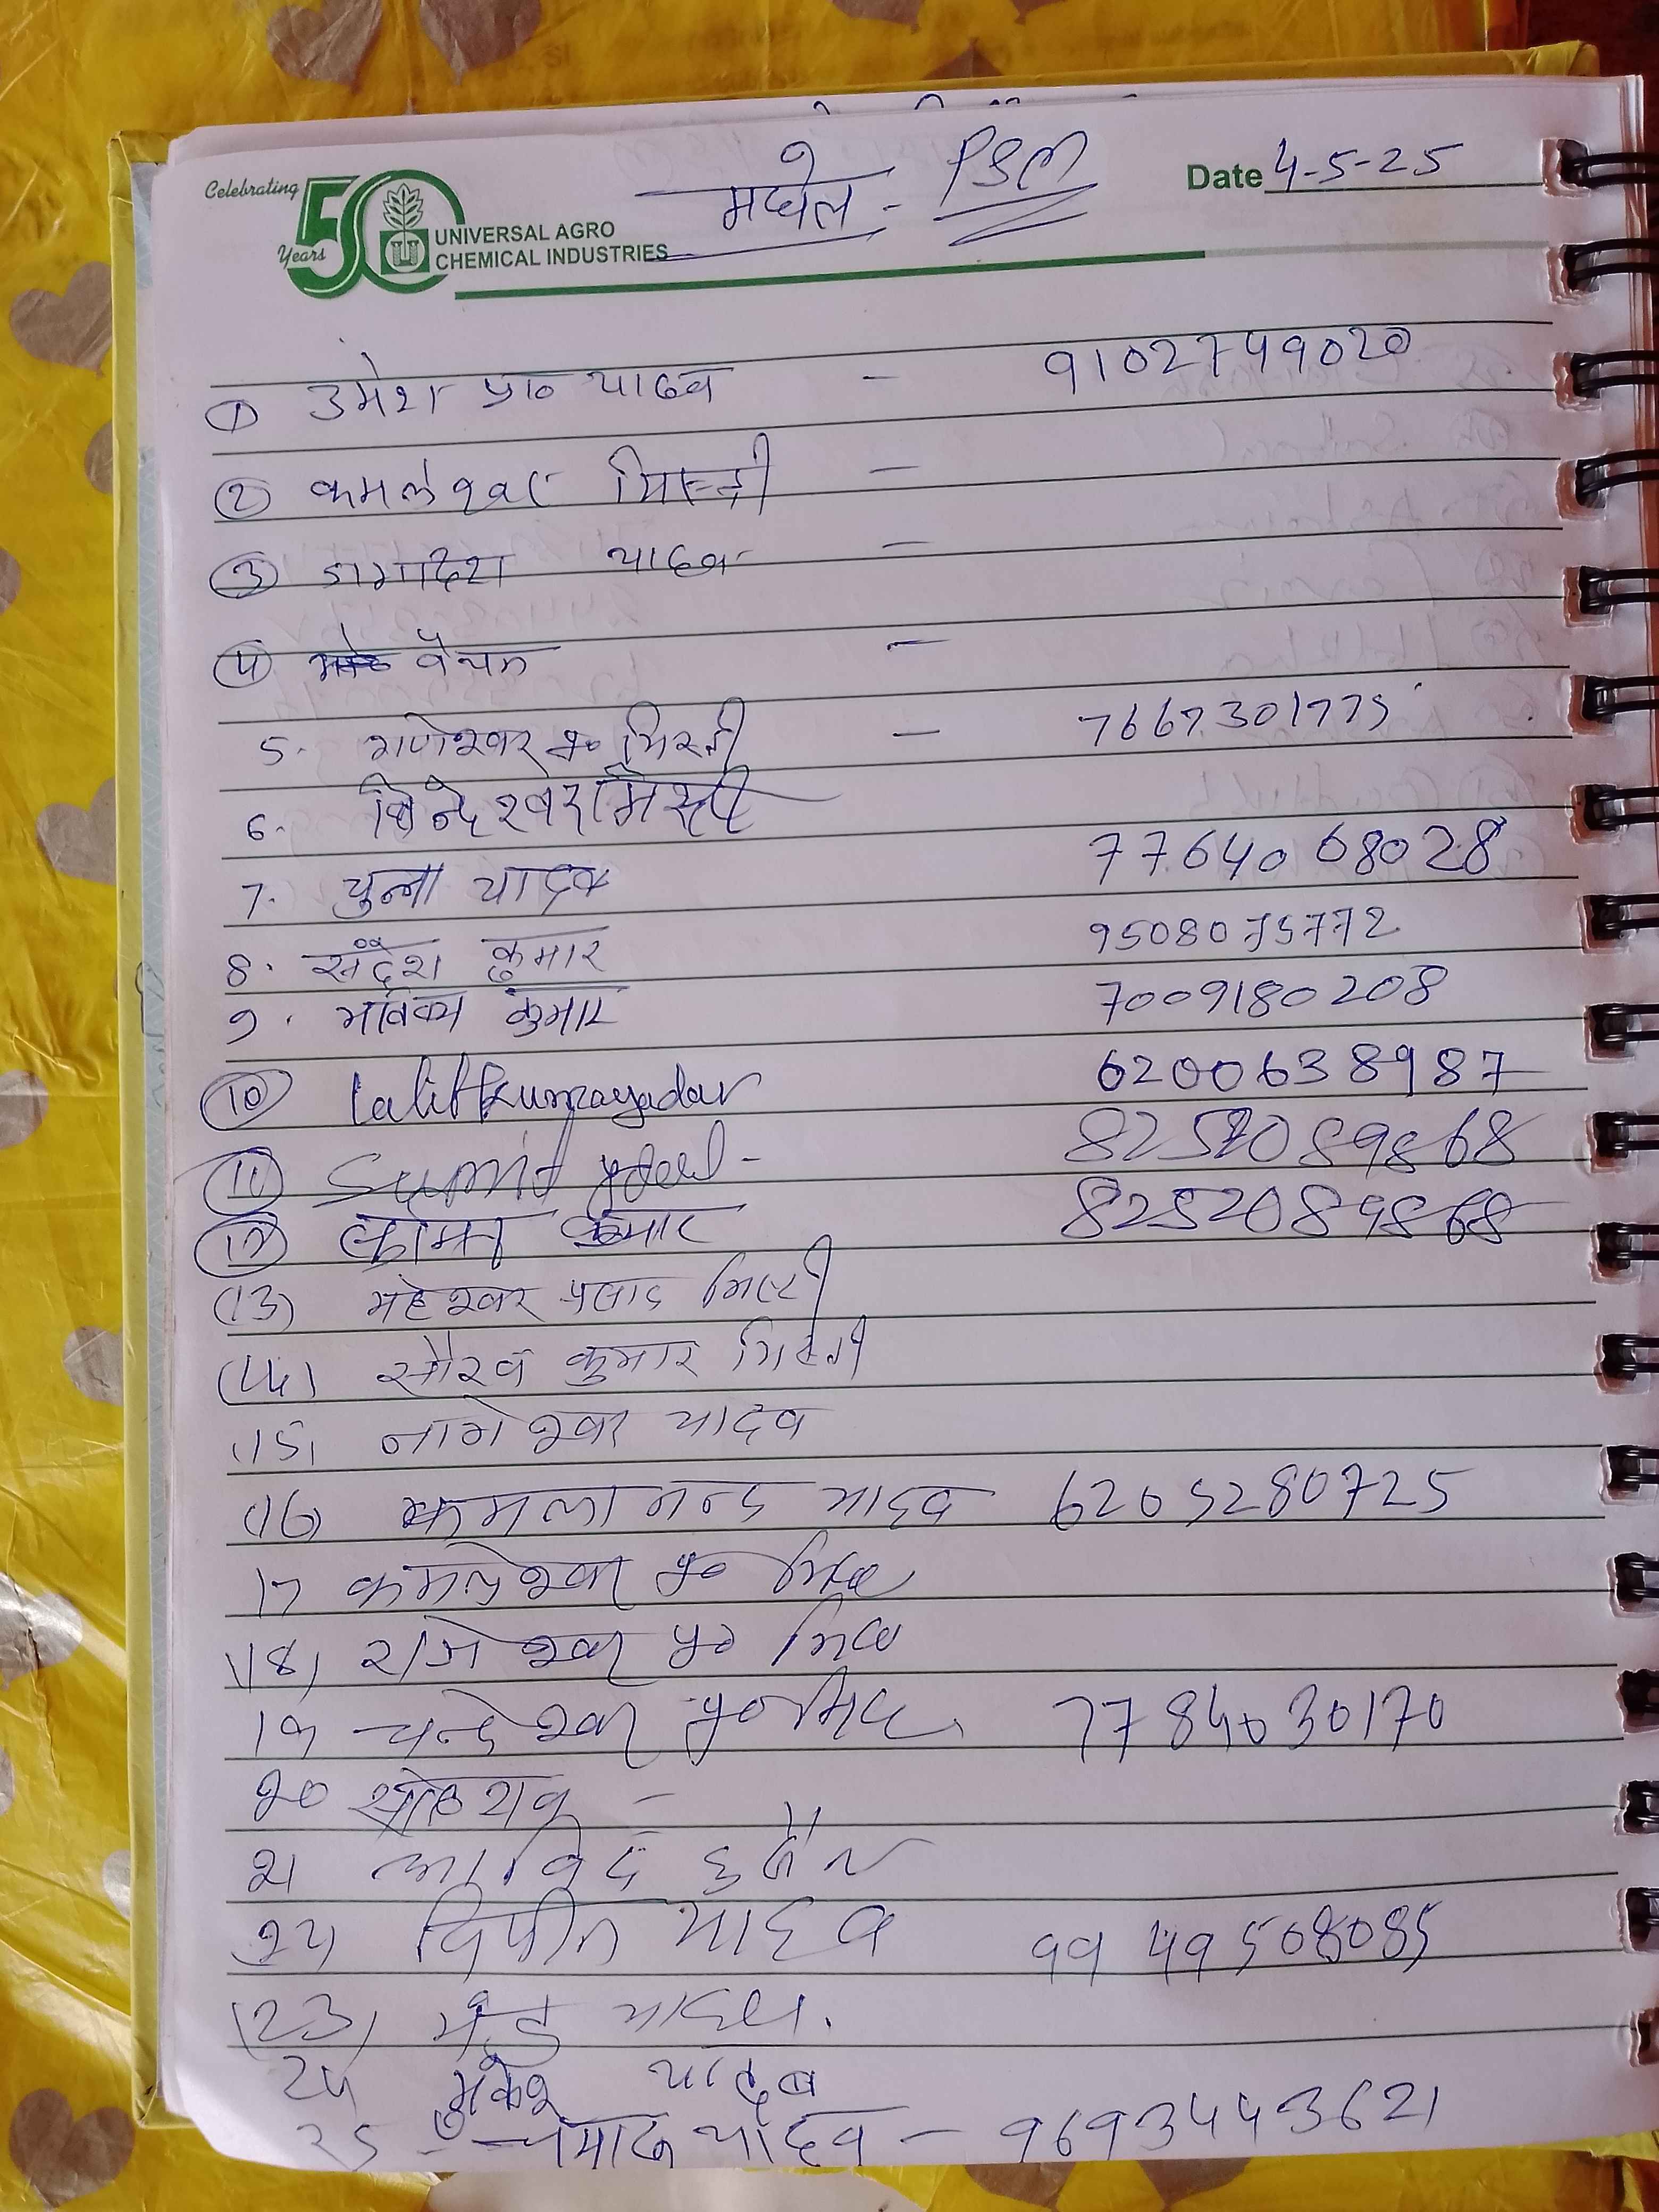 Celebrating
50
Years
UNIVERSAL AGRO
CHEMICAL INDUSTRIES
मघेल - PSM
Date 4-5-25
① उमेश प्र० यादव - 9102749020
② कमलेश्वर मिस्त्री -
③ जगदेश यादव -
④ वैचन -
5. गणेश्वर प्र० मिस्त्री - 7667301775
6. बिन्देश्वर मिस्त्री
7. चुन्ना यादव 7764068028
8. संदेश कुमार 9508075772
9. भविष्य कुमार 7009180208
⑩ lalitkumrayadav 6200638987
⑪ Sumit 8252089868
⑫ कुमार 8252089868
(13) महेश्वर प्रसाद मिस्त्री
(14) सौरव कुमार मिस्त्री
(15) नागेश्वर यादव
(16) कमलानन्द यादव 6205280725
17 कमलेश्वर प्र०
(18) राजेश्वर प्र०
19 चन्देश्वर प्र० 7784030170
20 -
21
22 विपीन यादव 9949508085
(23) यादव.
24 मुकेश यादव
25 - यादव - 9693443621